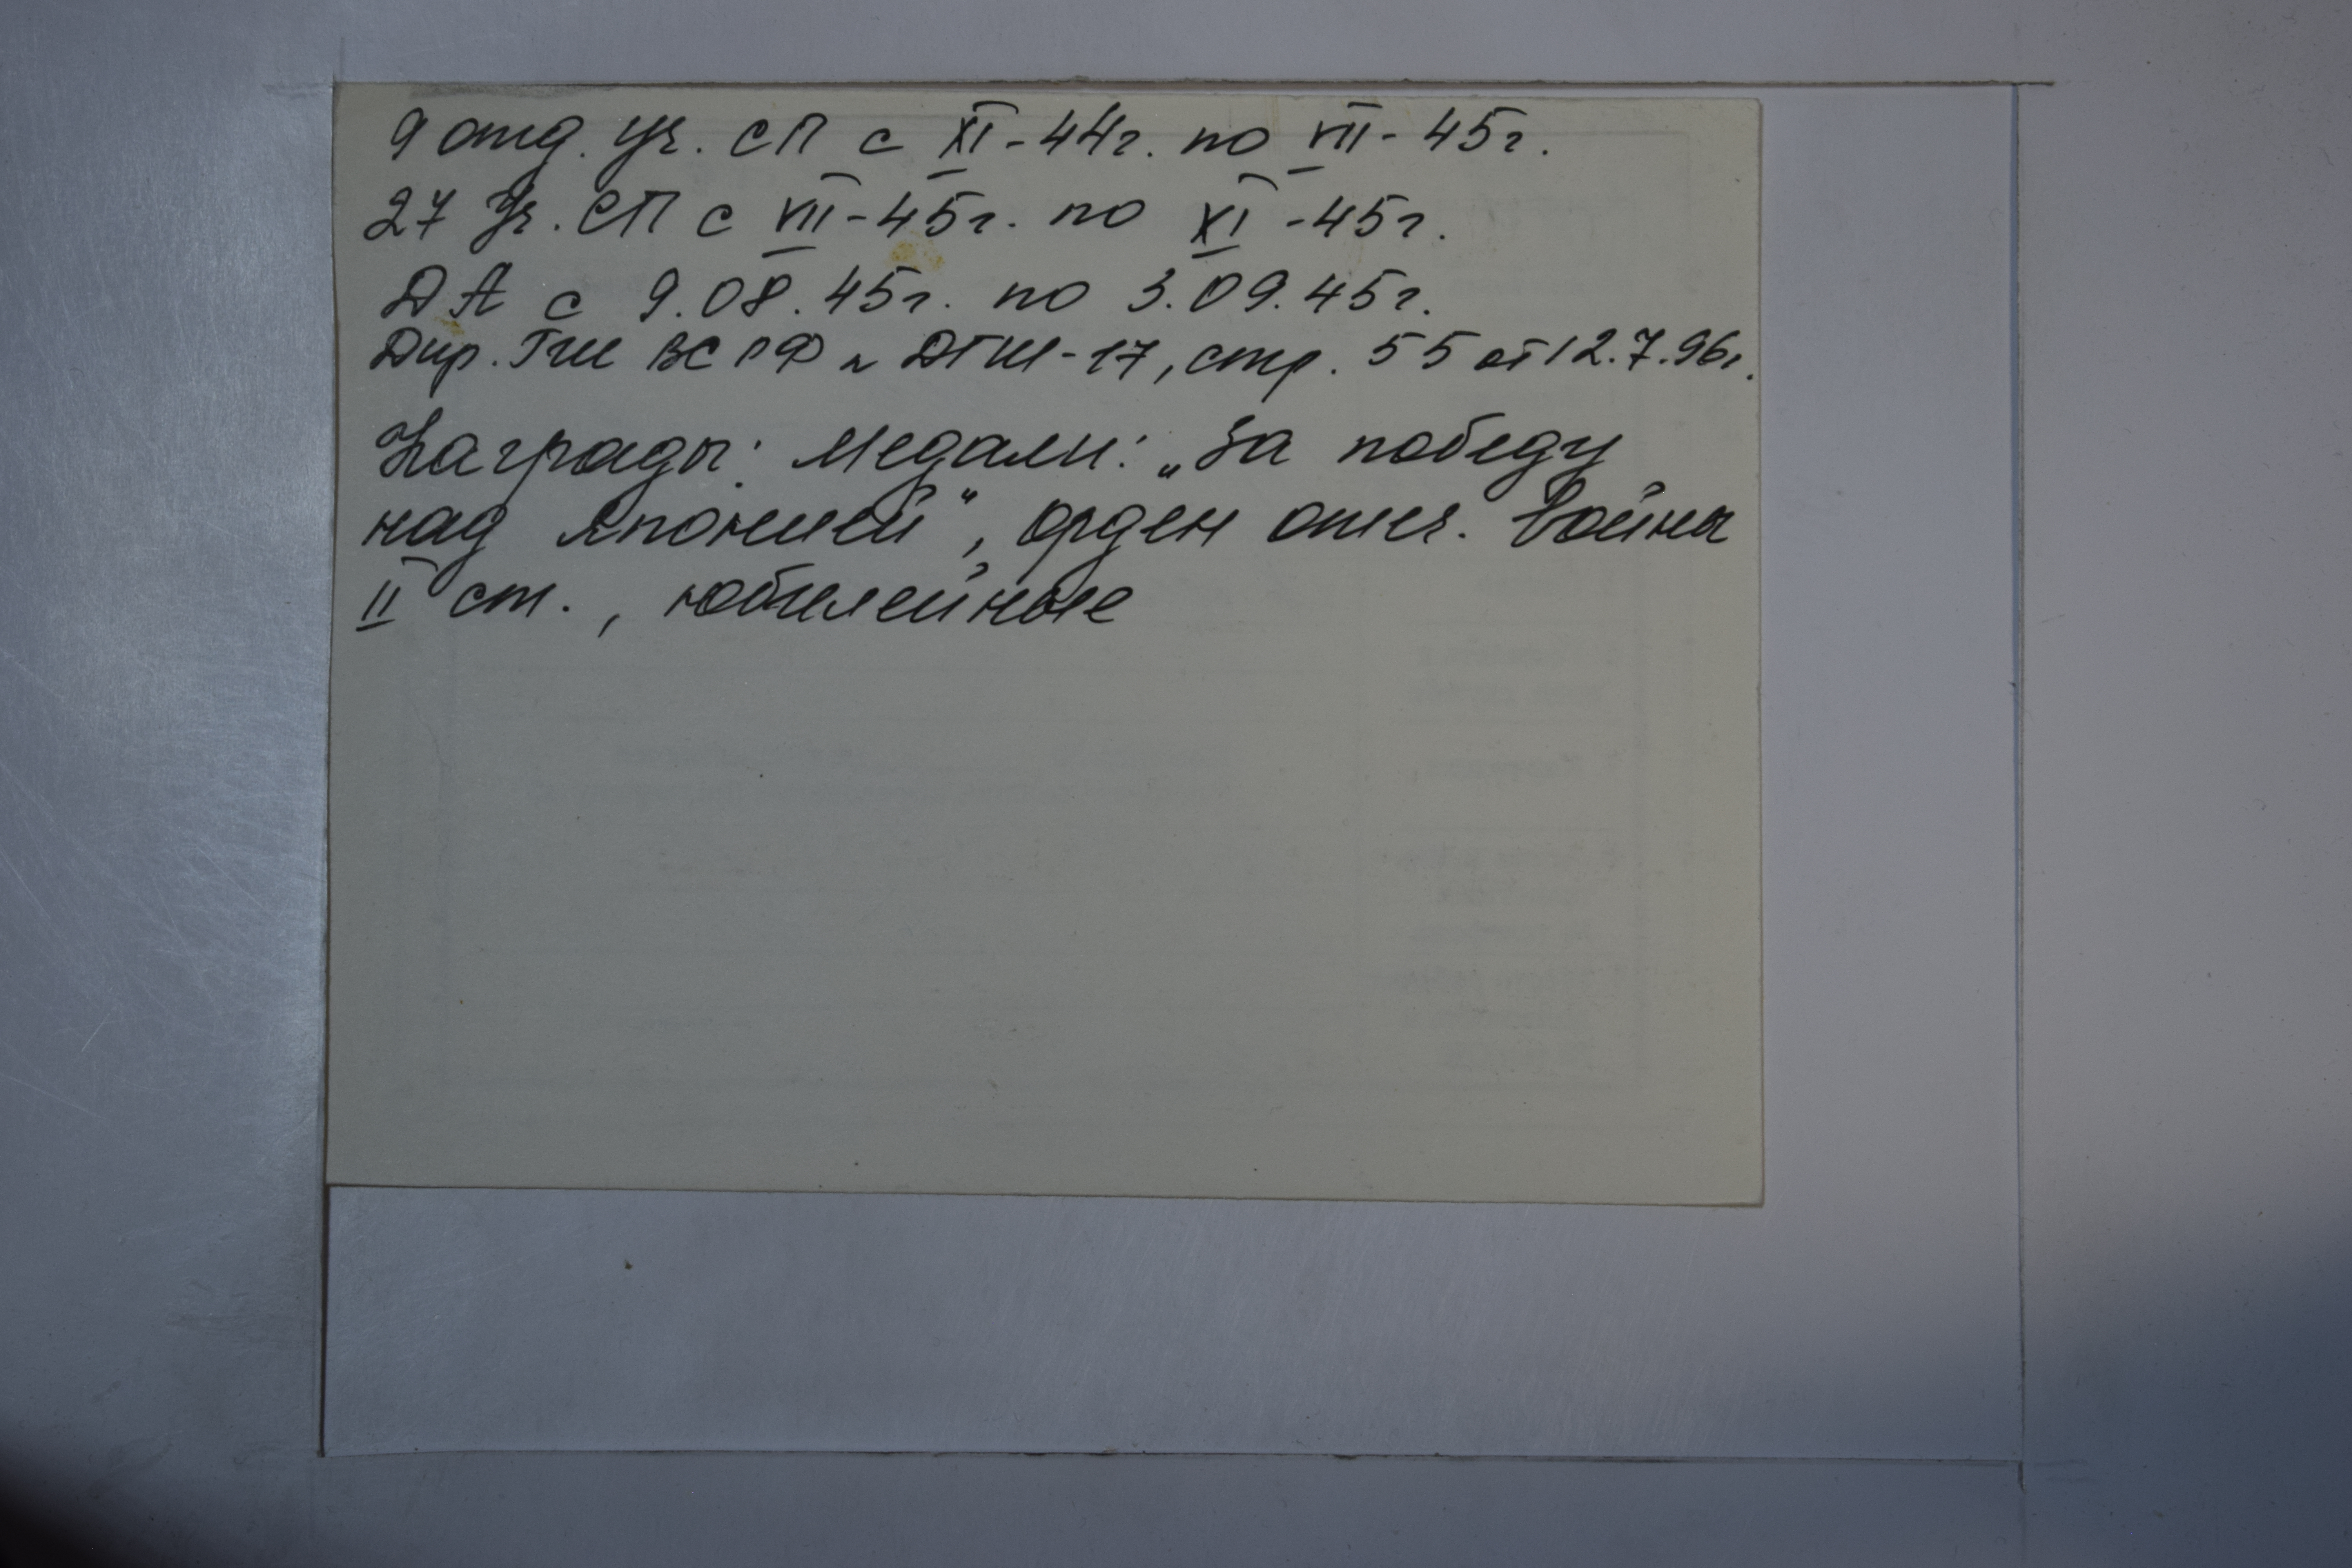 9 отд. уч. СП с XI-44г. по VII-45г.
27 Уч. СП с VII-45г. по XI-45г.
ДА с 9.08.45г. по 3.09.45г.
Дир. ГШ ВС РФ N ДГШ-17, стр. 55 от 12.7.96г.
Награды: Медали: „За победу
над Японией", орден отеч. Войны
II ст., юбилейные